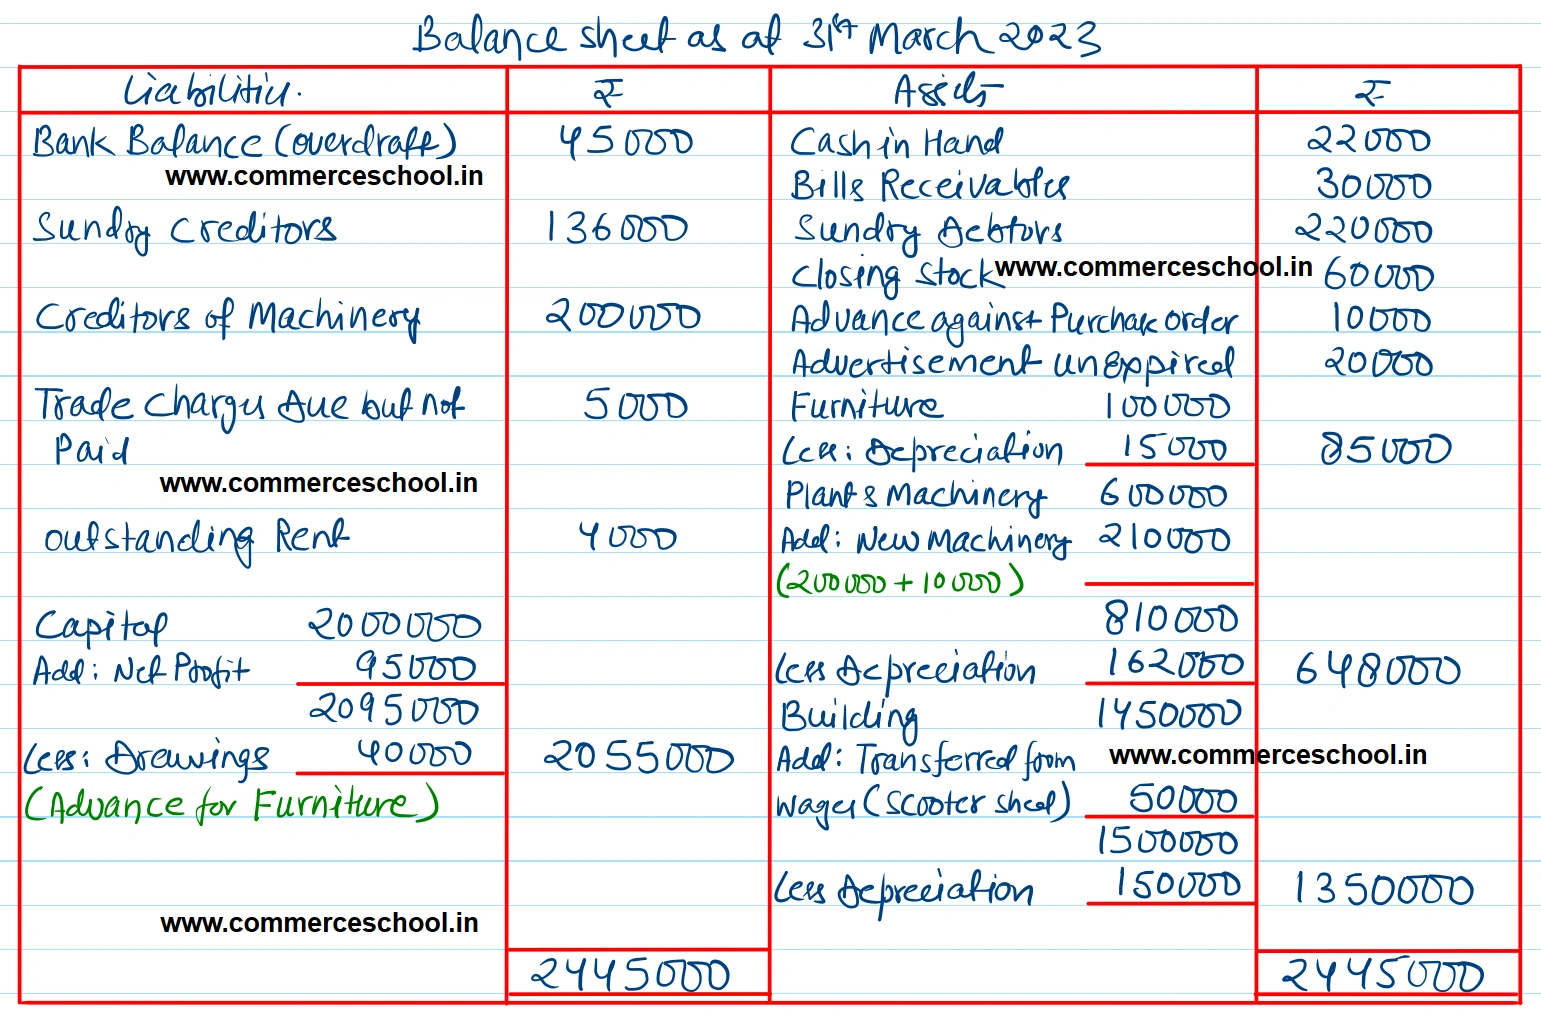 Balance sheet as at 31st March 2023
Liabilities. ₹ Assets ₹
Bank Balance (overdraft) 45000 Cash in Hand 22000
www.commerceschool.in
Bills Receivables 30000
Sundry Creditors 136000 Sundry Debtors 220000
Closing Stock www.commerceschool.in 60000
Creditors of Machinery 200000 Advance against Purchase order 10000
Advertisement unexpired 20000
Trade Charges Due but not 5000 Furniture 100000
Paid Less: Depreciation 15000 85000
www.commerceschool.in
Plant & Machinery 600000
outstanding Rent 4000 Add: New Machinery 210000
(200000 + 10000)
Capital 2000000 810000
Add: Net Profit 95000 Less Depreciation 162000 648000
2095000 Building 1450000
Less: Drawings 40000 2055000 Add: Transferred from www.commerceschool.in
(Advance for Furniture) Wages (Scooter shed) 50000
1500000
Less Depreciation 150000 1350000
www.commerceschool.in
2445000 2445000